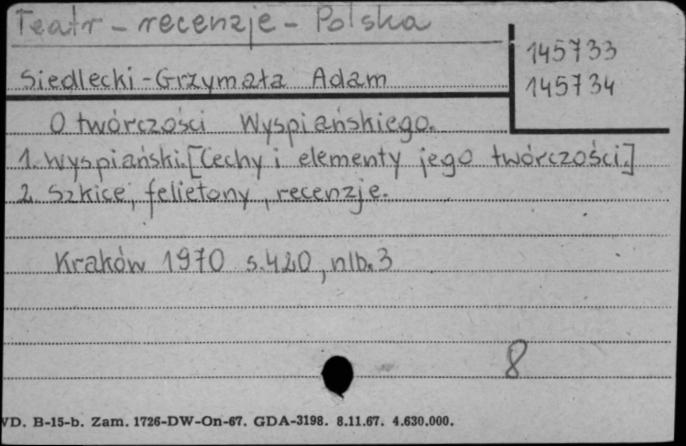 Teatr - recenzje - Polska
145733
Siedlecki-Grzymała Adam
145734
O twórczości Wyspiańskiego.
1. Wyspiański. [Cechy i elementy jego twórczości.]
2. Szkice, felietony, recenzje.
Kraków 1970 s. 420, nlb. 3
8
WD. B-15-b. Zam. 1726-DW-On-67. GDA-3198. 8.11.67. 4.630.000.